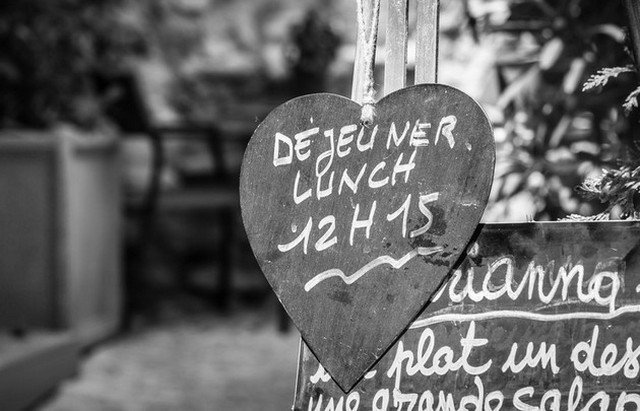 DÉJEUNER
LUNCH
12 H 15
plat un des
une grande salad